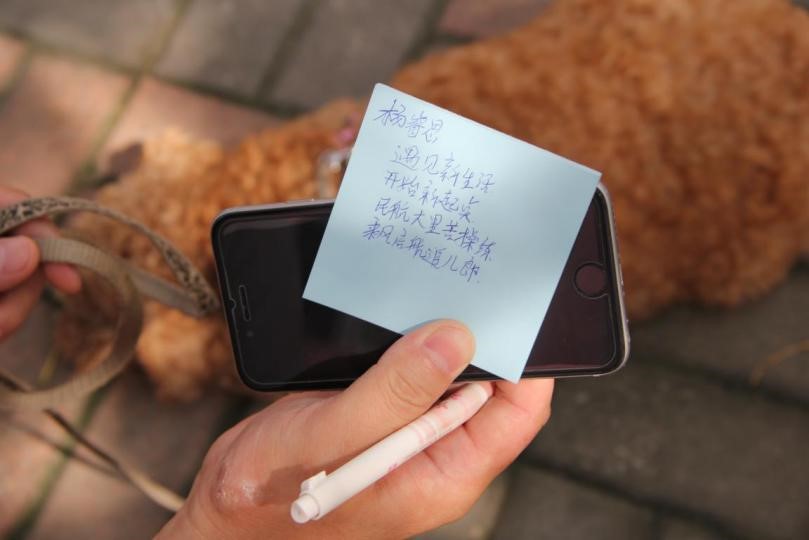 杨睿思
遇见新生活
开始新起点
民航大里苦操练
乘风启航追儿郎.